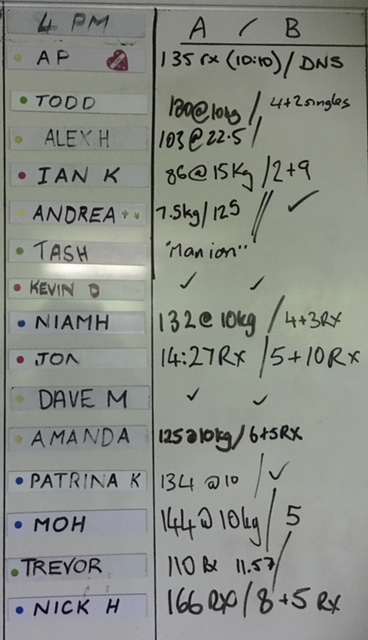 4 PM A / B
AP 135 rx (10:10) / DNS
TODD 130@10kg / 4+2 singles
ALEX H 103@22.5 /
IAN K 86@15Kg / 2+9
ANDREA 7.5kg/125 // ✓
TASH "Manion"
KEVIN D ✓ ✓
NIAMH 132@10kg / 4+3RX
JON 14:27RX / 5+10RX
DAVE M ✓ ✓
AMANDA 125@10kg / 6+5RX
PATRINA K 134 @10 / ✓
MOH 144@10kg / 5
TREVOR 110 Rx 11.57 /
NICK H 166RX / 8+5 RX